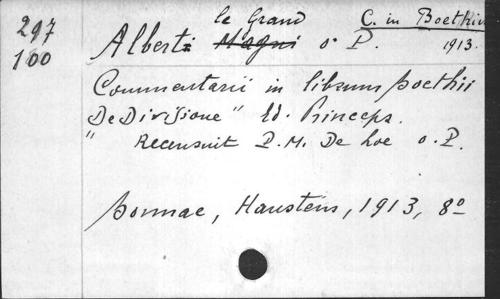 297
100
le Grand
C. in Boethiu
Albert: Magni o. P. 1913.
Commentarii in librum Boethii
De Divisione" Ed. Princeps.
" Recensuit P. M. De Loe o. P.
Bonnae, Hanstein, 1913, 8º